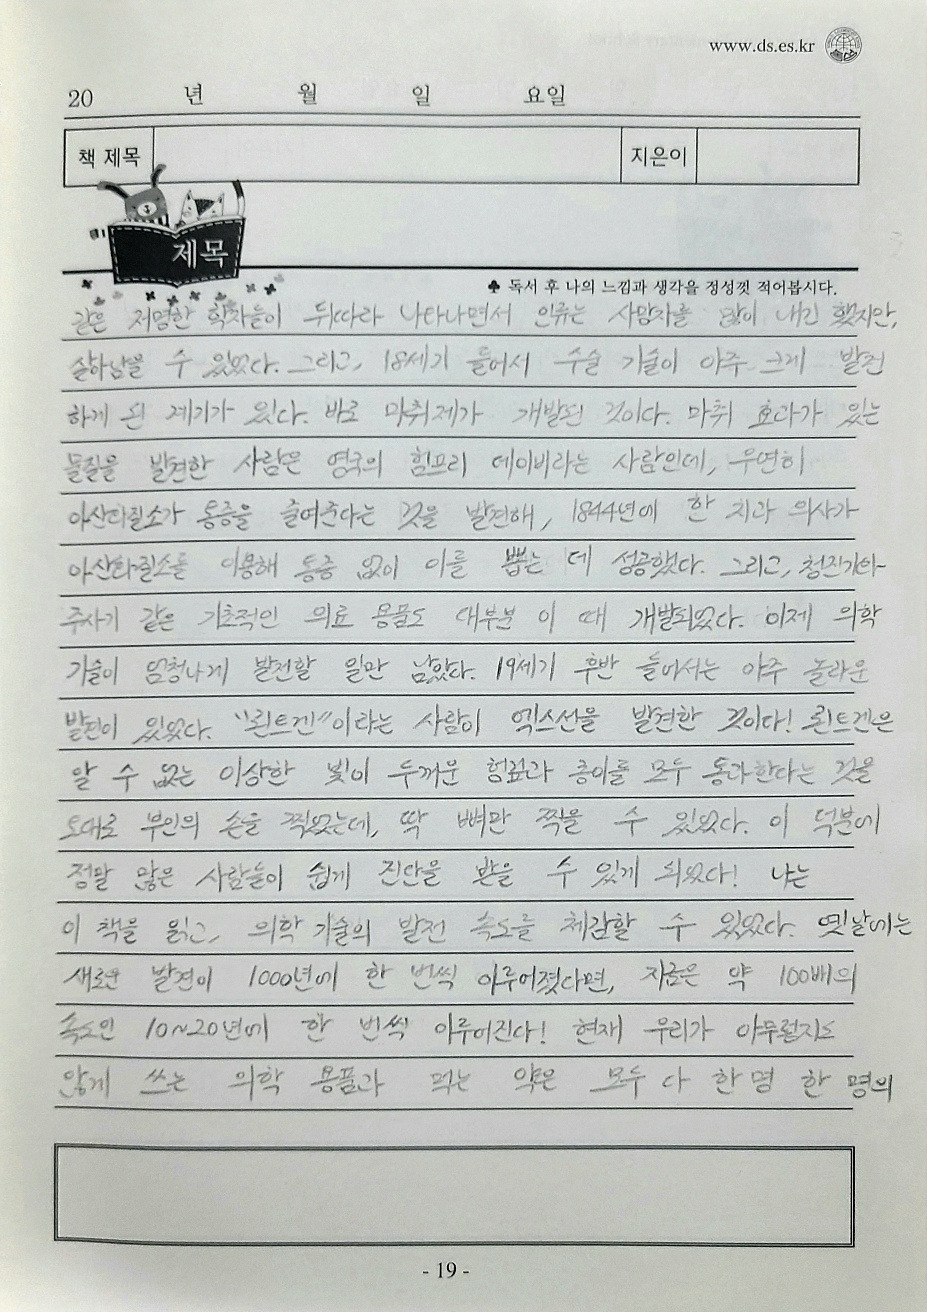 www.ds.es.kr
20 년 월 일 요일
책 제목 지은이
제목
♣ 독서 후 나의 느낌과 생각을 정성껏 적어봅시다.
같은 저명한 학자들이 뒤따라 나타나면서 인류는 사망자를 많이 내긴 했지만,
살아남을 수 있었다. 그리고, 18세기 들어서 수술 기술이 아주 크게 발전
하게 된 계기가 있다. 바로 마취제가 개발된 것이다. 마취 효과가 있는
물질을 발견한 사람은 영국의 험프리 데이비라는 사람인데, 우연히
아산화질소가 통증을 줄여준다는 것을 발견해, 1844년에 한 치과 의사가
아산화질소를 이용해 통증 없이 이를 뽑는 데 성공했다. 그리고, 청진기와
주사기 같은 기초적인 의료 용품도 대부분 이 때 개발되었다. 이제 의학
기술이 엄청나게 발전할 일만 남았다. 19세기 후반 들어서는 아주 놀라운
발전이 있었다. "뢴트겐"이라는 사람이 엑스선을 발견한 것이다! 뢴트겐은
알 수 없는 이상한 빛이 두꺼운 헝겊과 종이를 모두 통과한다는 것을
토대로 부인의 손을 찍었는데, 딱 뼈만 찍을 수 있었다. 이 덕분에
정말 많은 사람들이 쉽게 진단을 받을 수 있게 되었다! 나는
이 책을 읽고, 의학 기술의 발전 속도를 체감할 수 있었다. 옛날에는
새로운 발견이 1000년에 한 번씩 이루어졌다면, 지금은 약 100배의
속도인 10~20년에 한 번씩 이루어진다! 현재 우리가 아무렇지도
않게 쓰는 의학 용품과 먹는 약은 모두 다 한 명 한 명의
- 19 -